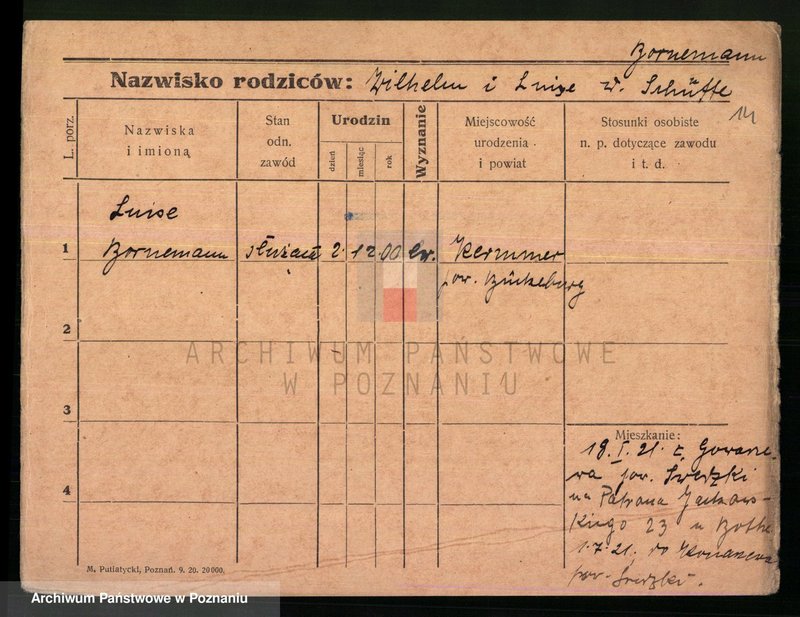 Bornemann
Nazwisko rodziców: Wilhelm i Luise d. Schütte
14
L. porz.
Nazwiska
i imioną
Stan
odn.
zawód
Urodzin
dzień
miesiąc
rok
Wyznanie
Miejscowość
urodzenia
i powiat
Stosunki osobiste
n. p. dotyczące zawodu
i t. d.
Luise
1 Bornemann służąca 2. 12 00 Ew.
pow. Bückeburg
2
ARCHIWUM PAŃSTWOWE
W POZNANIU
3
Mieszkanie:
18. I. 21. z
pow. Średzki
4 na Patrona Jackows-
kiego 23 u Bothe
1.7.21. do
pow. Średzki.
M. Putiatycki, Poznań. 9. 20. 20000.
Archiwum Państwowe w Poznaniu